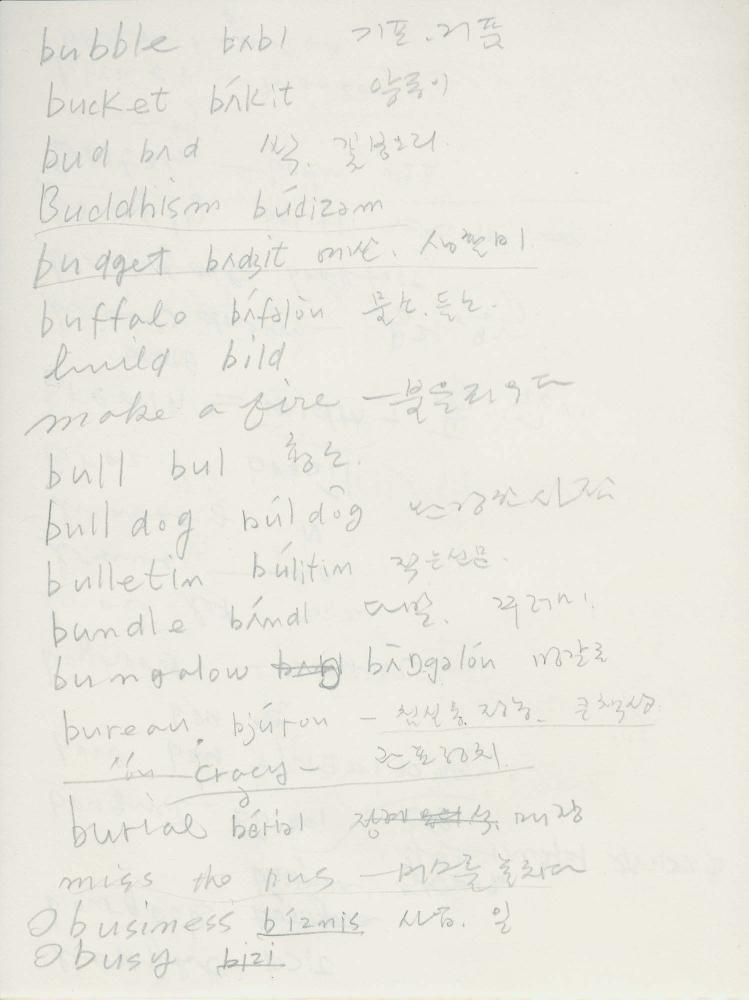 bubble bʌbl 기포. 거품
bucket bʌ́kit 양동이
bud bʌd 싹. 꽃봉오리.
Buddhism búdizəm
budget bʌdʒit 예산. 생활비.
buffalo bʌ́fəlòu 물소. 들소.
build bild
make a fire — 불을 피우다
bull bul 황소.
bull dog búl dôg
bulletin búlitin 작은 신문.
bundle bʌ́ndl 다발. 꾸러미.
bungalow bʌ̂ŋgəlóu 방갈로
bureau. bjúrou — 큰 책상
cracy —
burial bériəl 매장
miss the bus — 버스를 놓치다
business bíznis 사업. 일
busy bizi